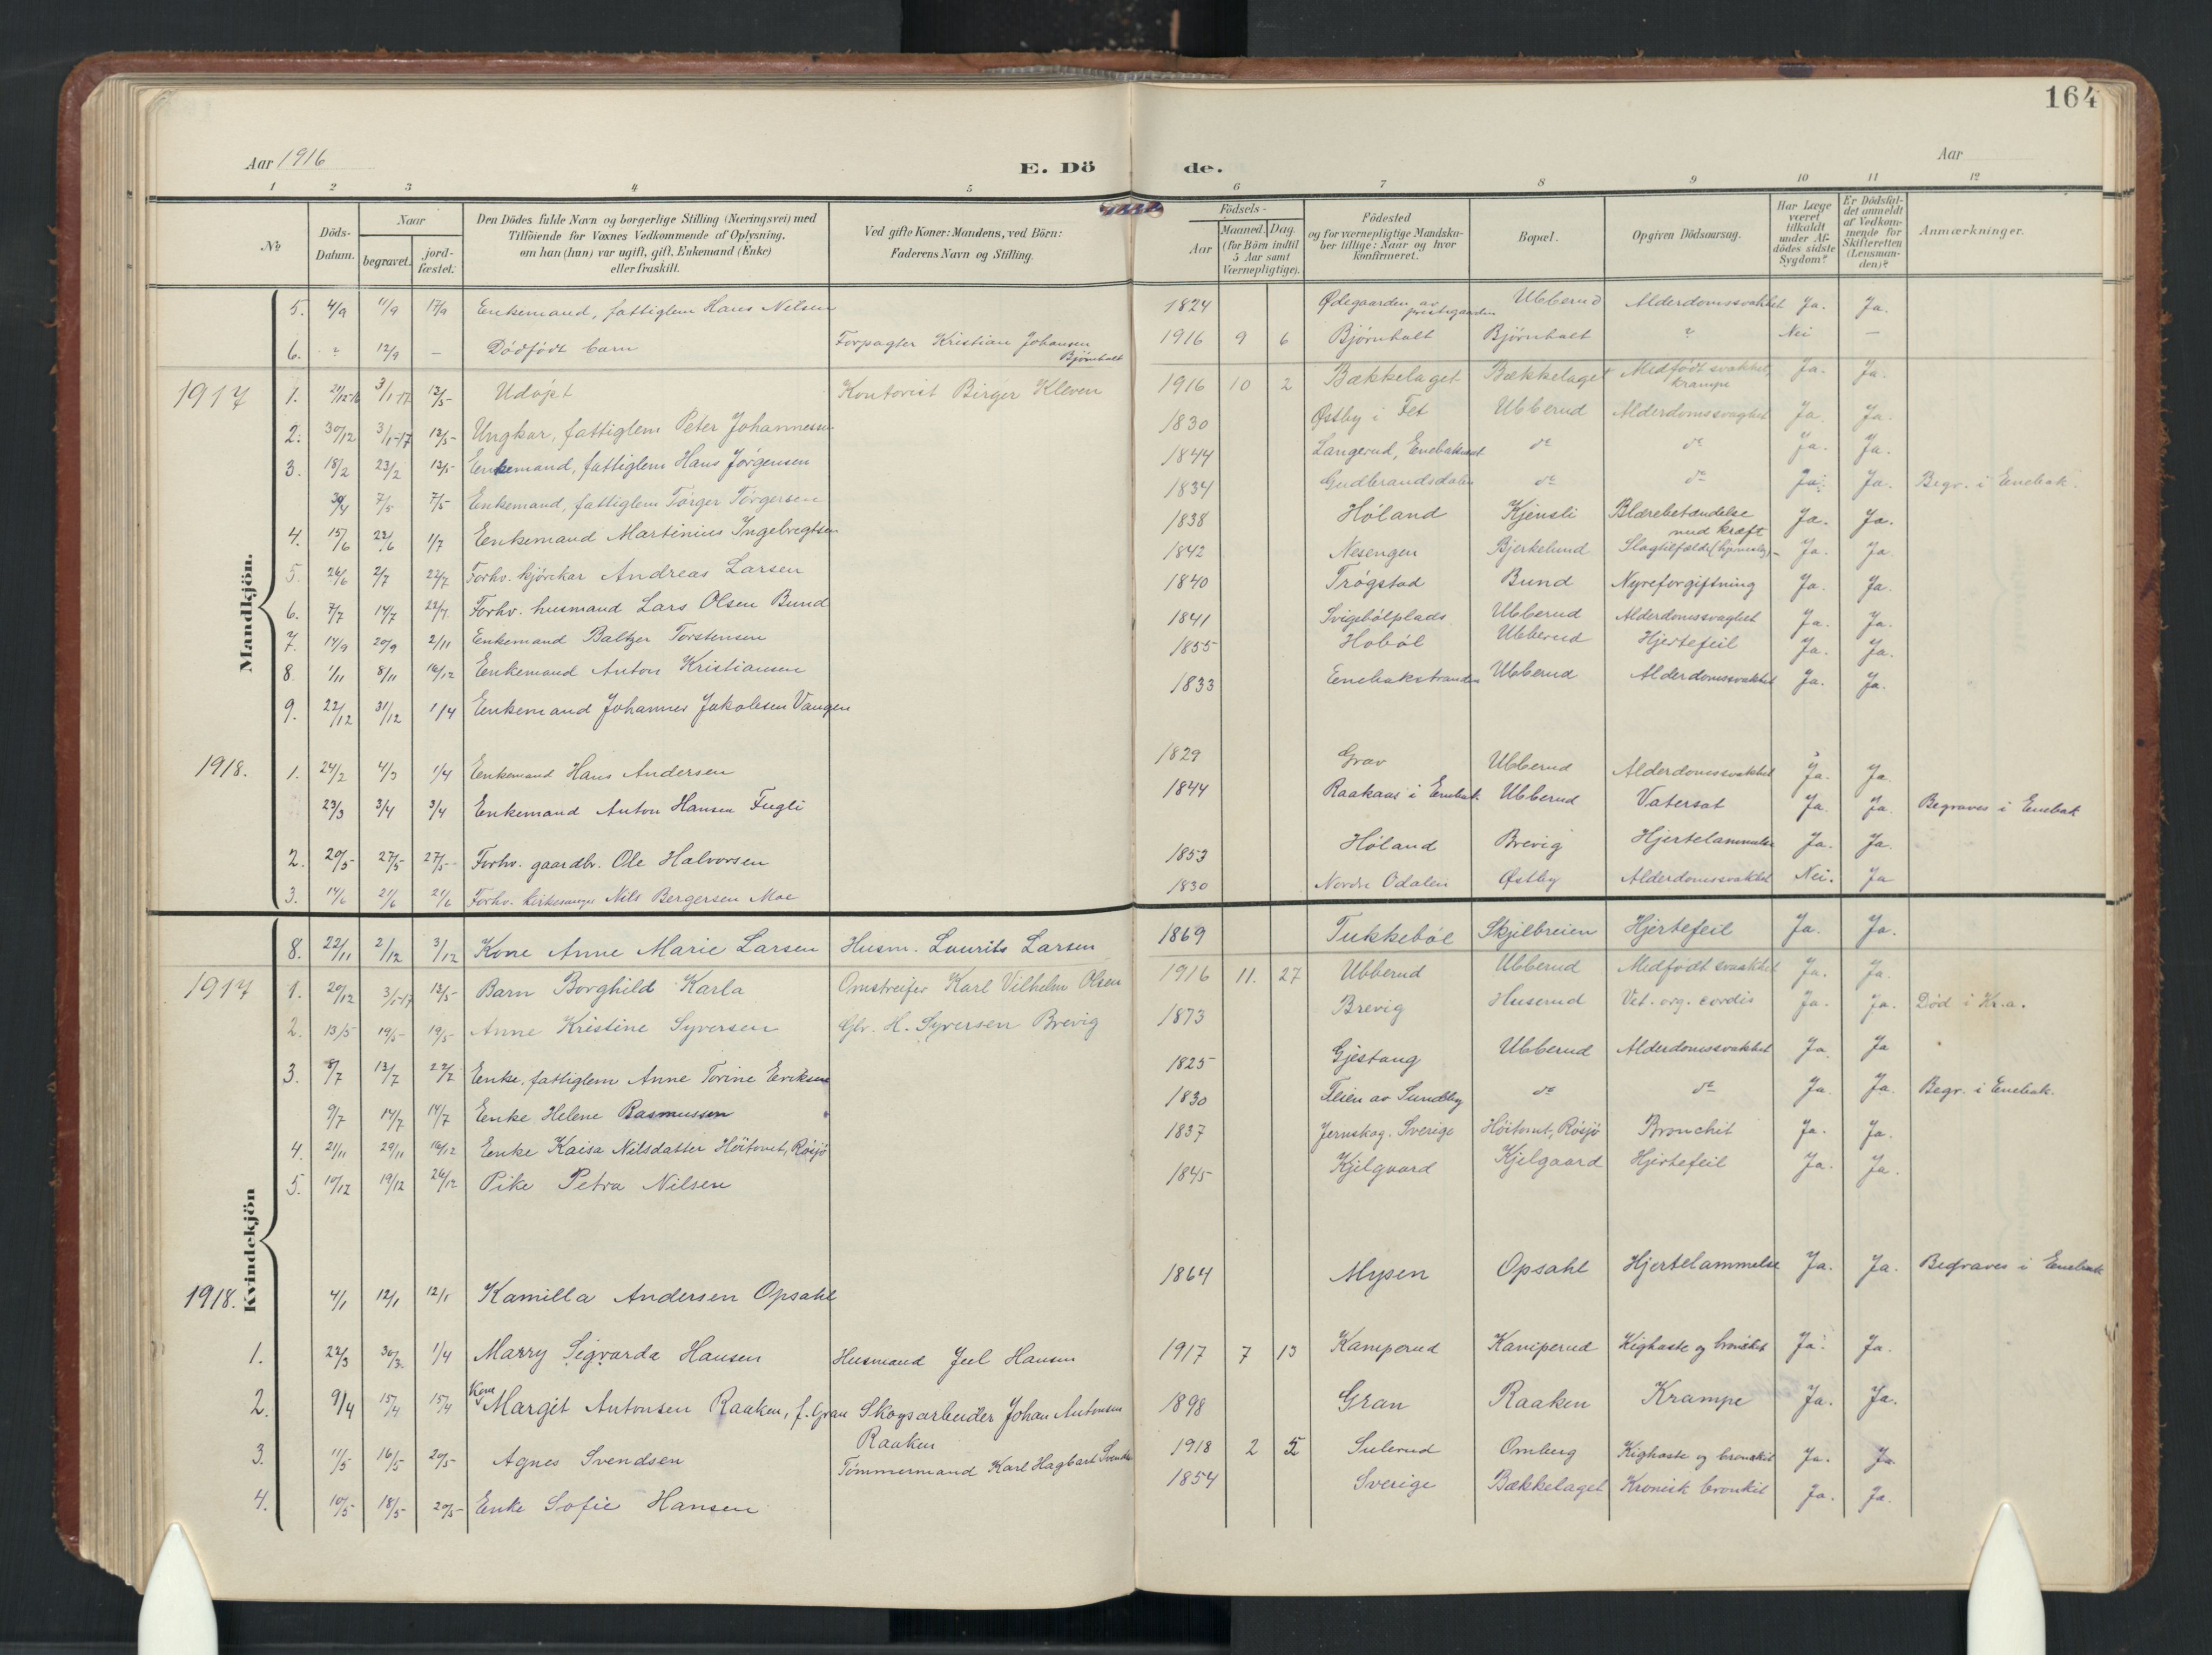 164
Aar 1916
E. Dö de.
Aar
1 2 3 4 5 6 7 8 9 10 11 12
No Döds-Datum. Naar begravet. jord-fæstet. Den Dödes fulde Navn og borgerlige Stilling (Næringsvei) med Tilföiende for Voxnes Vedkommende af Oplysning, om han (hun) var ugift, gift, Enkemand (Enke) eller fraskilt. Ved gifte Koner: Mandens, ved Börn: Faderens Navn og Stilling. Födsels- Aar Maaned. Dag. (for Börn indtil 5 Aar samt Værnepligtige). Födested og for værnepligtige Mandska-ber tillige: Naar og hvor konfirmeret. Bopæl. Opgiven Dödsaarsag. Har Læge været tilkaldt under Af-dödes sidste Sygdom? Er Dödsfal-det anmeldt af Vedkom-mende for Skifteretten (Lensman-den)? Anmærkninger.
Mandkjön.
5. 4/9 11/9 17/9 Enkemand, fattiglem Hans Nilsen 1824 Ødegaarden av prestegaarden Ubberud Alderdomssvakhet Ja. Ja.
6. ? 12/9 – Dödfödt barn Forpagter Kristian Johansen Bjørnholt 1916 9 6 Bjørnholt Bjørnholt ? Nei –
1917 1. 3/1-17 12/5- Udøpt Kontorist Birger Kleven 1916 10 2 Bækkelaget Bækkelaget Medfødt svakhet, krampe Ja. Ja.
2. 30/12 3/1-17 12/5- Ungkar, fattiglem Peter Johannesen 1830 Østby i Fet Ubberud Alderdomssvaghet Ja. Ja.
3. 18/2 23/2 12/5- Enkemand, fattiglem Hans Jørgensen 1844 Langerud, do do Ja. Ja.
30/4 7/5 7/5- Enkemand, fattiglem Torger Torgersen 1834 Gudbrandsdalen do do Ja. Ja. Begr. i Enebak.
4. 15/6 22/6 1/7 Enkemand Martinius Ingebregtsen 1838 Høland Kjensli Blærebetændelse med kræft Ja. Ja.
5. 26/6 2/7 22/7 Forhv. kjørekar Andreas Larsen 1842 Nesengen Bjerkelund Slagtilfælde Ja. Ja
6. 7/7 14/7 22/7 Forhv. husmand Lars Olsen Bund 1840 Trøgstad Bund Nyreforgiftning Ja. Ja.
7. 14/9 20/9 2/11 Enkemand Baltzer Torstensen 1841 Svigebölplads Ubberud Alderdomssvaghet Ja. Ja.
8. 1/11 8/11 16/12 Enkemand Anton Kristiansen 1855 Hobøl Ubberud Hjertefeil Ja. Ja.
9. 22/12 31/12 1/4 Enkemand Johannes Jakobsen Vangen 1833 Enebakstranden Ubberud Alderdomssvakhet Ja. Ja.
1918. 1. 24/2 4/3 1/4 Enkemand Hans Andersen 1829 Grav Ubberud Alderdomssvakhet Ja. Ja.
23/3 3/4 3/4 Enkemand Anton Hansen Fugli 1844 Raakaas i Enebak Ubberud Vatersot Ja. Ja. Begraves i Enebak
2. 20/5- 27/5 27/5- Forhv. gaardbr. Ole Halvorsen 1853 Høland Brevig Hjertelammelse Ja. Ja.
3. 14/6 21/6 21/6 Forhv. kirkesanger Nils Bergersen Moe 1830 Nordre Odalen Østby Alderdomssvakhet Nei. Ja
Kvindekjön
8. 22/11 2/12 3/12 Kone Anne Marie Larsen Husm. Laurits Larsen 1869 Tukkeböl Skjelbreien Hjertefeil Ja. Ja.
1917 1. 20/12 3/1-17 12/5- Barn Borghild Karla Omstreifer Karl Vilhelm Olsen 1916 11. 27 Ubberud Ubberud Medfødt svakhet Ja. Ja.
2. 13/5 19/5- 19/5- Anne Kristine Syversen Gbr. H. Syversen Brevig 1873 Brevig Huserud Vit. org. cordis Ja. Ja. Død i Kr.a.
3. 8/7 13/7 22/7 Enke, fattiglem Anne Torine Eriksen 1825 Gjestang Ubberud Alderdomssvakhet Ja. Ja
9/7 14/7 14/7 Enke Helene Rasmussen 1830 Flien av Sundby do do Ja. Ja. Begr. i Enebak.
4. 21/11 29/11 16/12 Enke Kaisa Nilsdatter Høitomt, Røsjø 1837 Jernskog. Sverige Høitomt, Røsjø Bronchit Ja. Ja.
5. 10/12 19/12 26/12 Pike Petra Nilsen 1845 Kjilgaard Kjelgaard Hjertefeil Ja. Ja.
1918. 4/1 12/1 12/1 Kamilla Andersen Opsahl 1864 Mysen Opsahl Hjertelammelse Ja. Ja. Begraves i Enebak
1. 22/3 30/3. 1/4 Marry Sigvarda Hansen Husmand Juel Hansen 1917 7 13 Kamperud Kamperud Kighoste og bronkit Ja. Ja.
2. 9/4 15/4 15/4 Kone Margit Antonsen Raaken, f. Gran Skogsarbeider Johan Antonsen Raaken 1898 Gran Raaken Krampe Ja. Ja.
3. 11/5 16/5 20/5- Agnes Svendsen Tømmermand Karl Hagbart Svendsen 1918 2 5 Sulerud Omberg Kighoste og bronkit Ja. Ja
4. 10/5- 18/5- 20/5- Enke Sofie Hansen 1854 Sverige Bækkelaget Kronisk bronkit Ja. Ja.